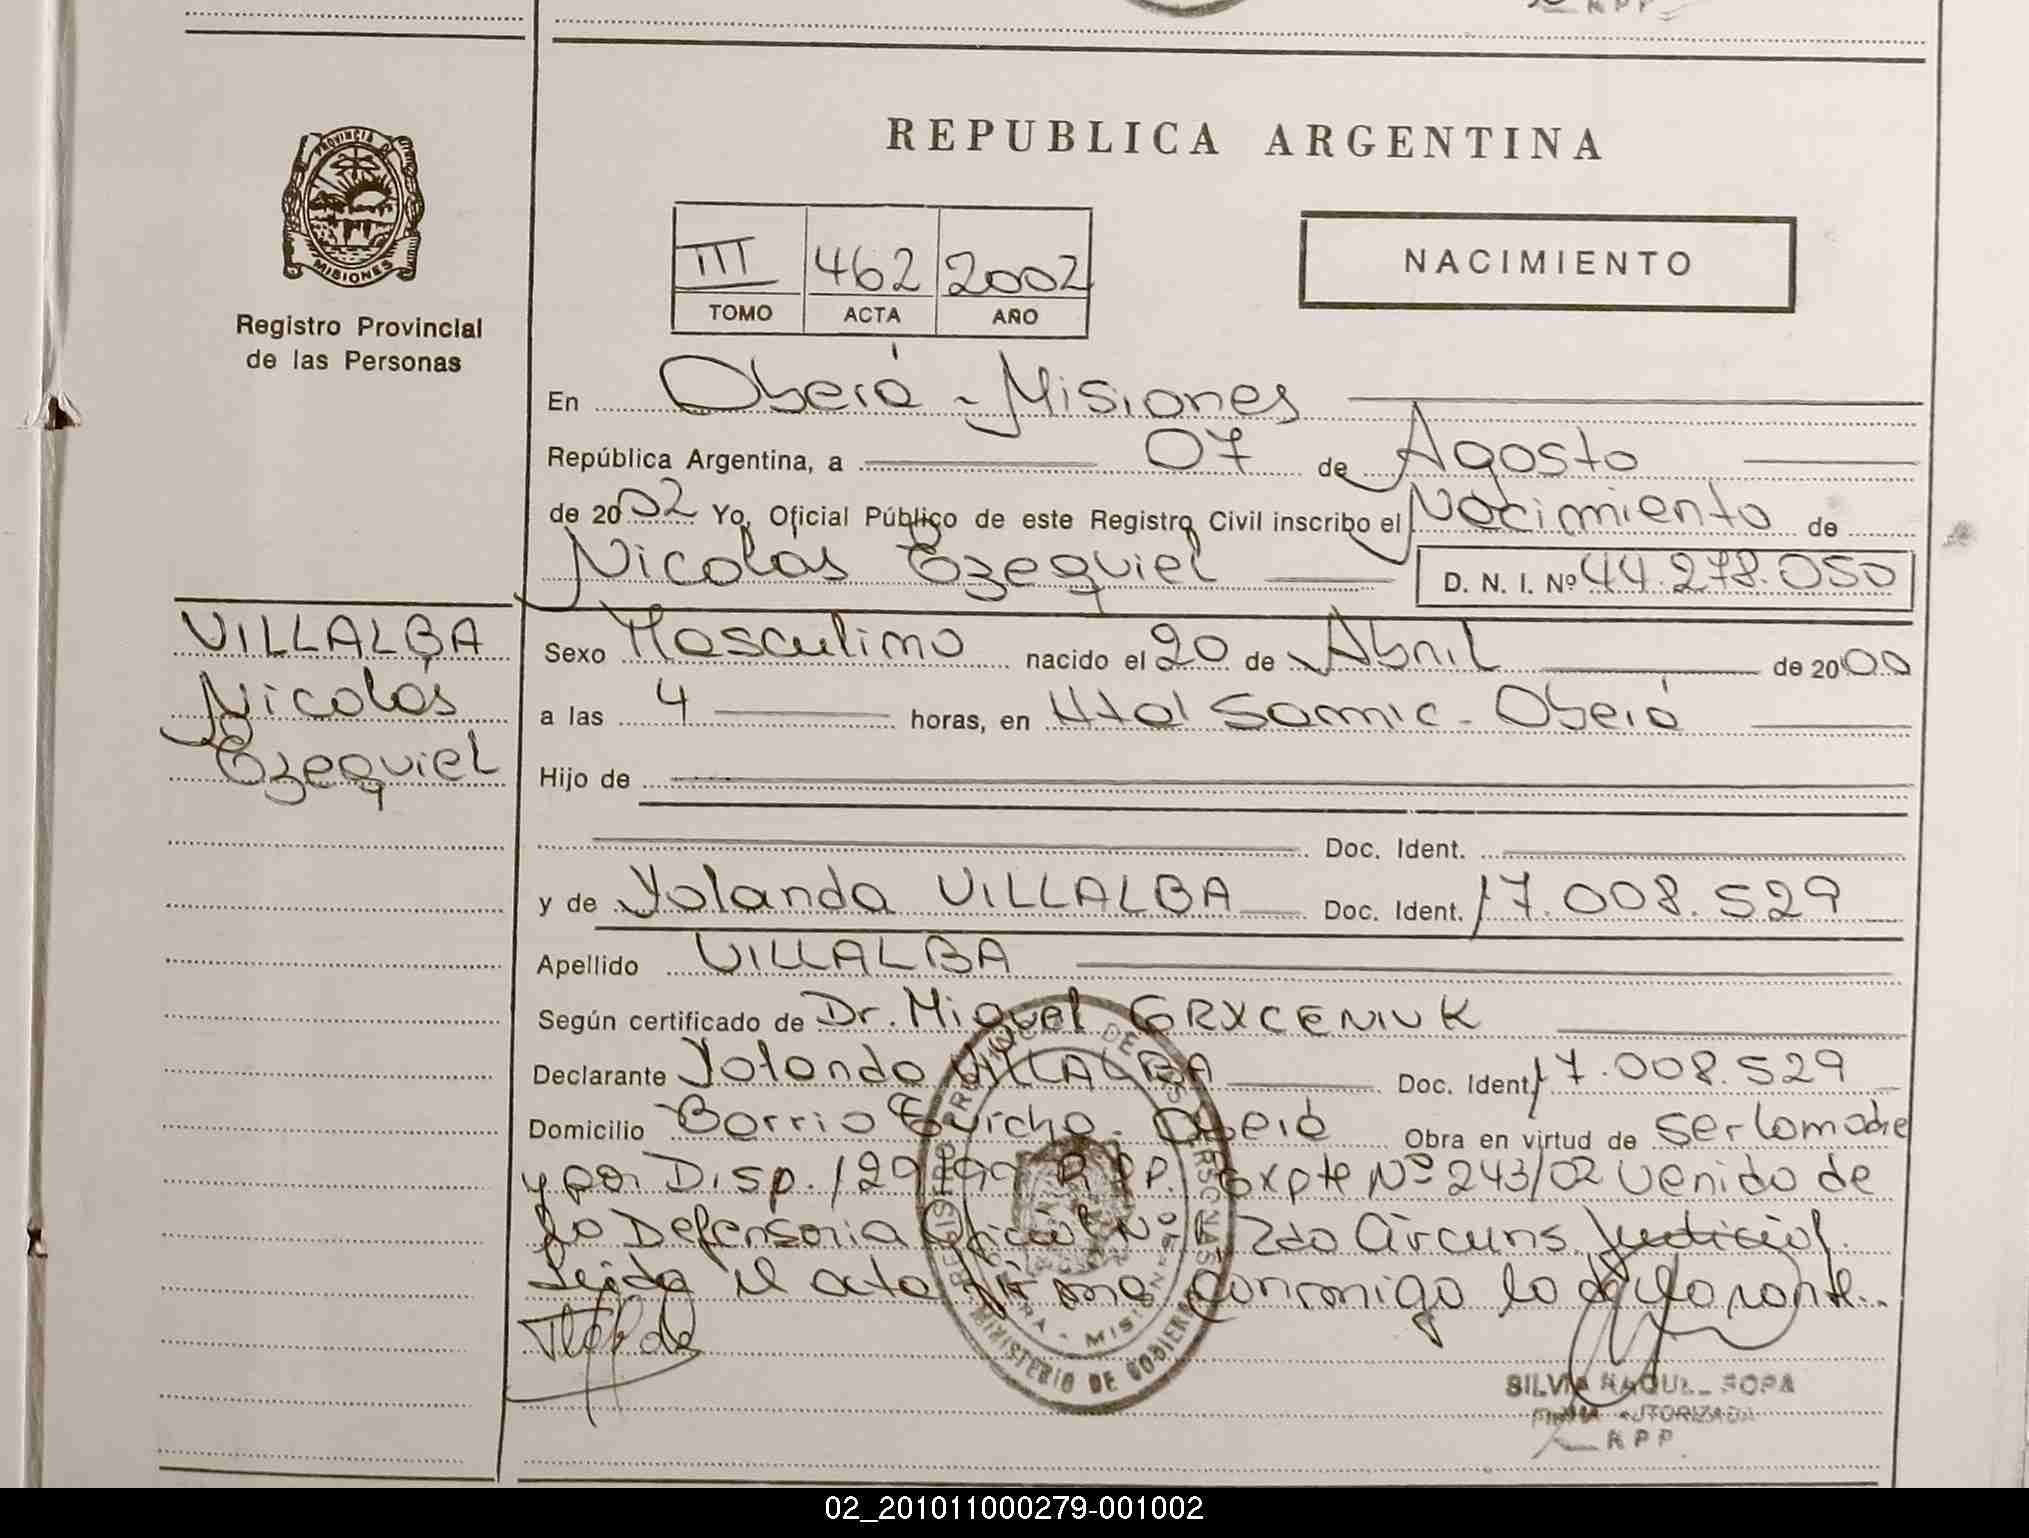 REPUBLICA ARGENTINA
PROVINCIA DE
MISIONES
Registro Provincial
de las Personas
III 462 2002
TOMO ACTA AÑO
NACIMIENTO
En Oberá - Misiones
República Argentina, a 07 de Agosto
de 2002 Yo, Oficial Público de este Registro Civil inscribo el Nacimiento de
Nicolas Ezequiel D. N. I. Nº 44.278.050
VILLALBA
Nicolás
Ezequiel
Sexo Masculino nacido el 20 de Abril de 2000
a las 4 horas, en Htal Samic - Oberá
Hijo de
Doc. Ident.
y de Yolanda VILLALBA Doc. Ident. 17.008.529
Apellido VILLALBA
Según certificado de Dr. Miguel GRXCENIUK
Declarante Yolanda VILLALBA Doc. Ident. 17.008.529
Domicilio Barrio Oberá Obra en virtud de ser la madre
y por Disp. 129/99 R.P.P. Expte Nº 243/02 venido de
la Defensoria Oficial Nº 2da Circuns. Judicial.
Leida el acta firma conmigo la declarante.
REGISTRO PROVINCIAL DE LAS PERSONAS
MINISTERIO DE GOBIERNO
SILVIA RAQUEL
FIRMA AUTORIZADA
R P P
02_201011000279-001002